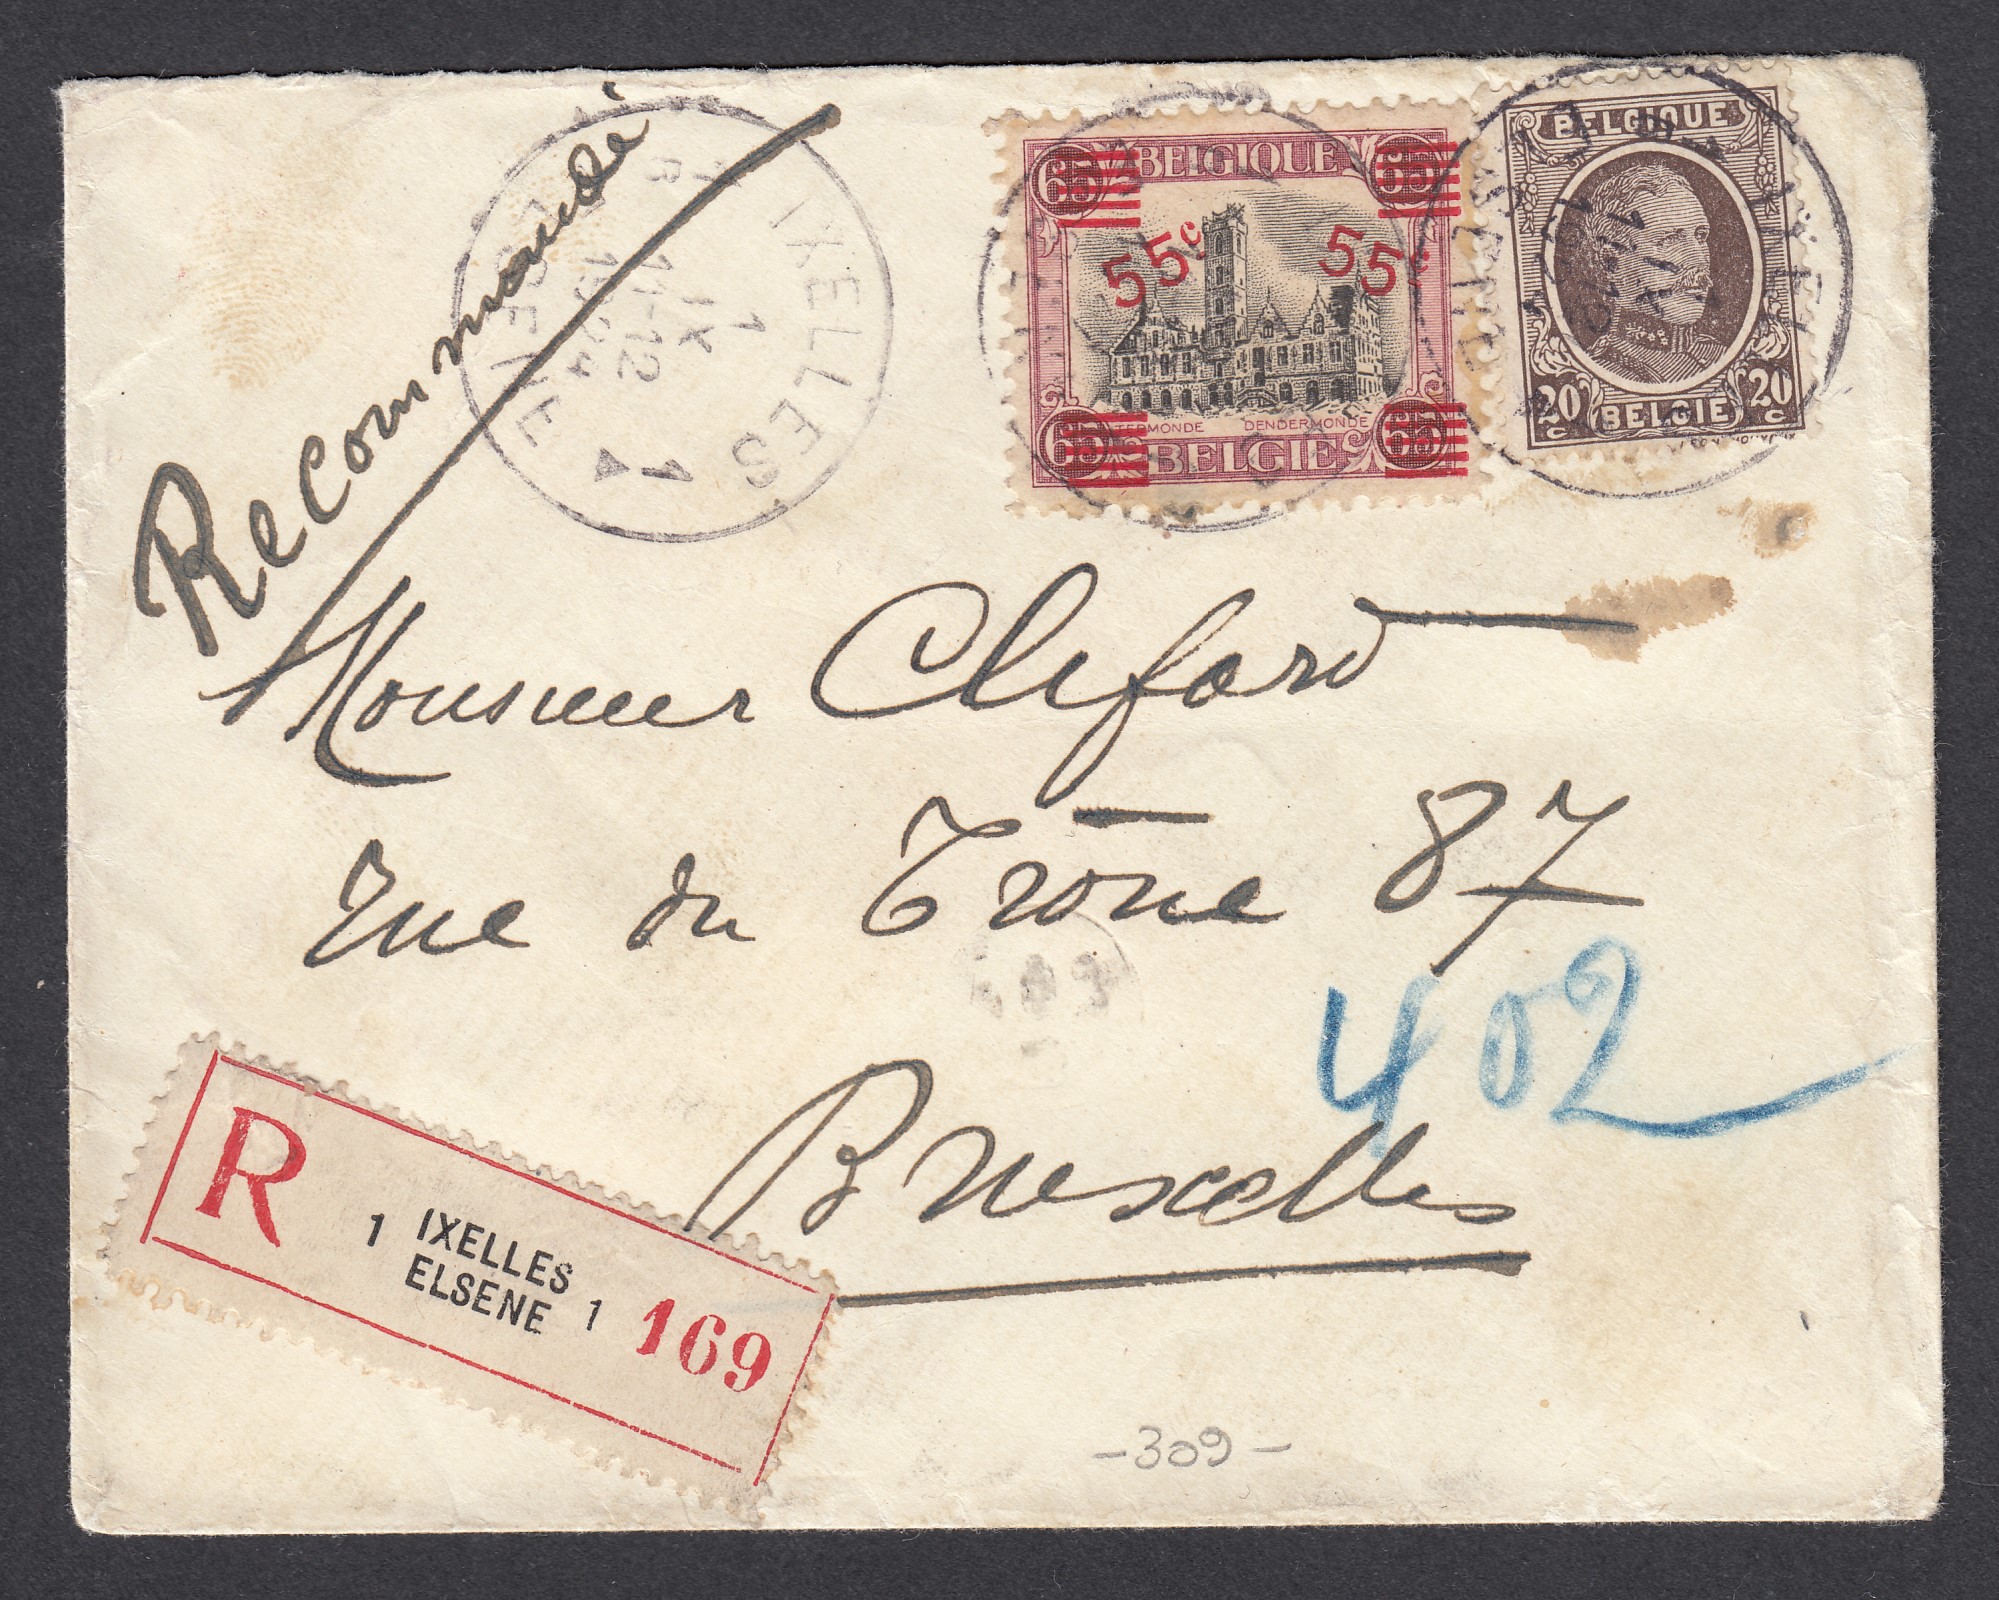 Recommandé
IXELLES
1
IX
11-12
1924
ELSENE
1 A
BELGIQUE
65 65
55c 55c
TERMONDE DENDERMONDE
65 65
BELGIE
BELGIQUE
20c 20c
BELGIE
Monsieur Cliford
Rue du Trône 87
402
Bruxelles
R
1 IXELLES
ELSENE 1
169
-309-